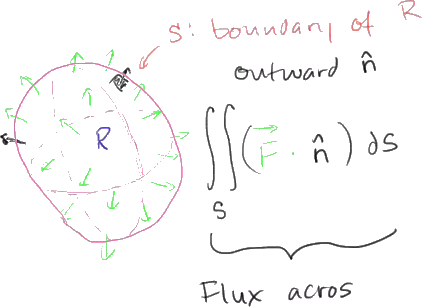 S: boundary of R
outward n̂
R
∬ (F⃗ · n̂) dS
S
Flux acros